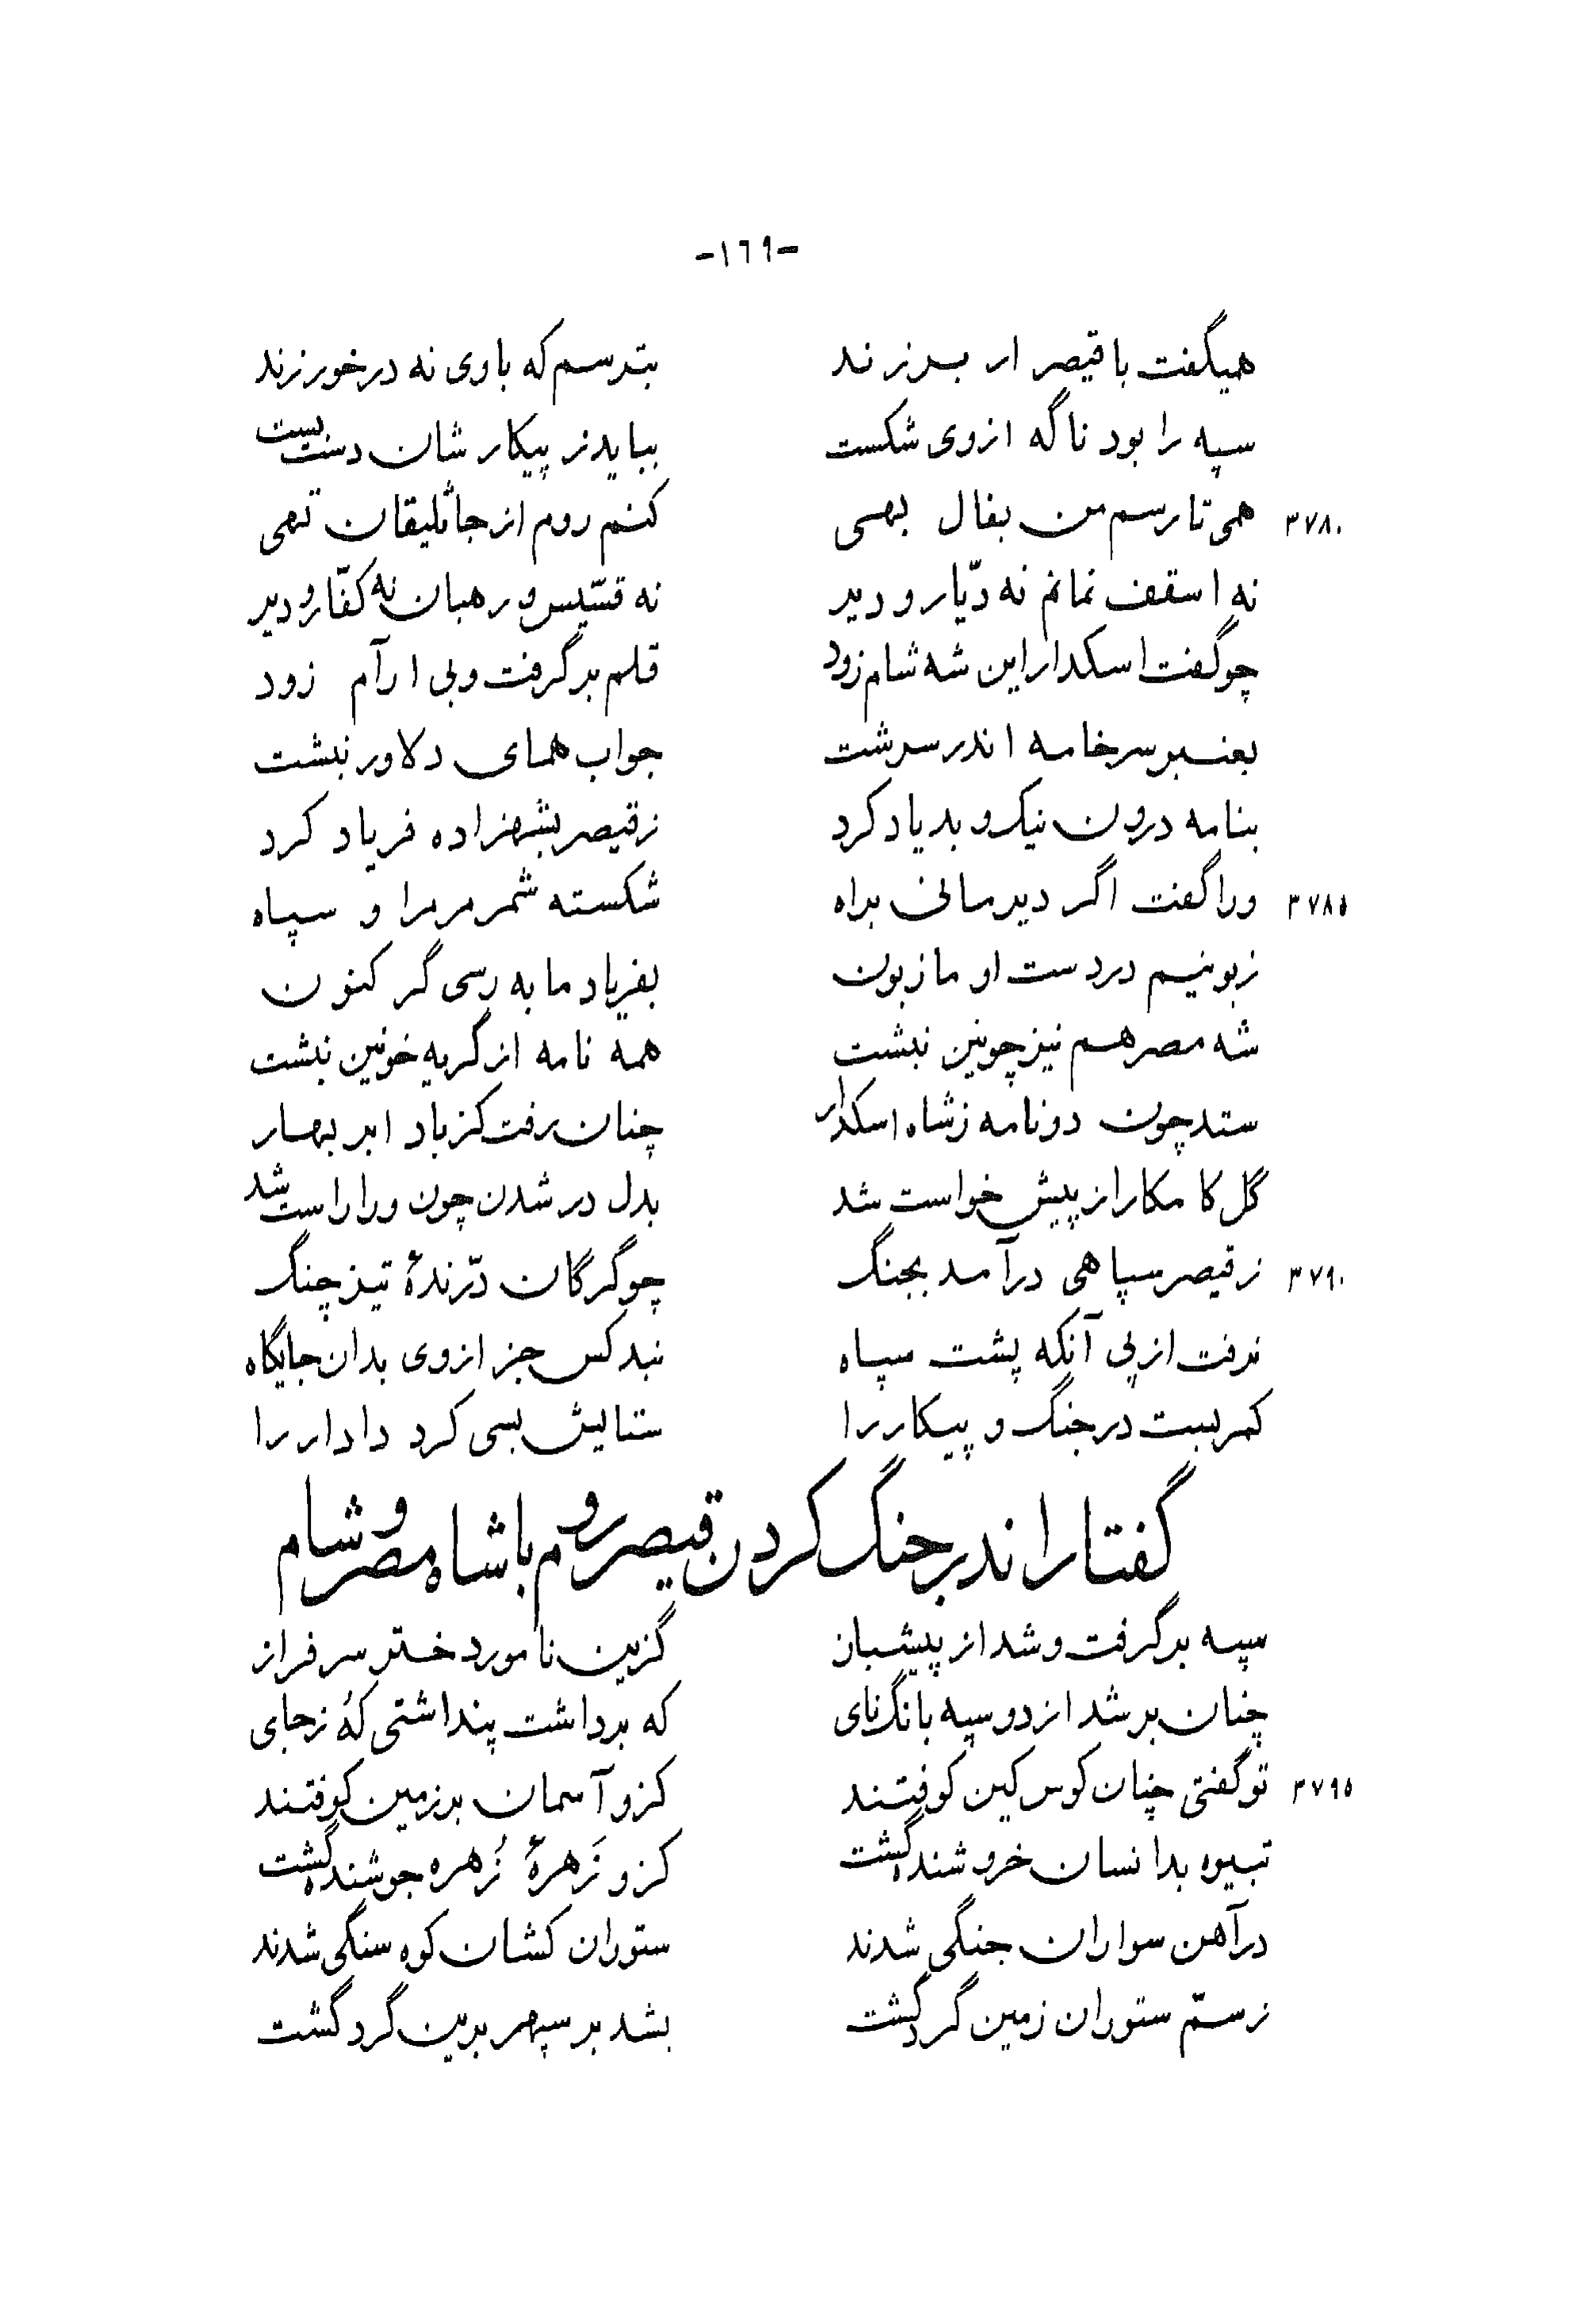 -١٦٩-
همیگفت با قیصر ار برزند بترسم که باوی نه درخور زند
سپه را بود ناگه ازوی شکست ببایدز پیکار شان دست بست
۳۷۸۰ همی تا رسم من بفال بهی کنم روم از جاثلیقان تهی
نه اسقف نمانم نه دیّار و دیر نه قسّیس و رهبان نه کفّار و دیر
چو گفت اسکدار این شه شام زود قلم برگرفت و بی ارآم زود
بعنبر سر خامه اندر سرشت جواب همای دلاور نبشت
بنامه درون نیک و بد یاد کرد ز قیصر بشهزاده فریاد کرد
۳۷۸۵ ورا گفت اگر دیر مانی براه شکسته شمر مر مرا و سپاه
زبونیم در دست او ما زبون بفریاد ما به رسی گر کنون
شه مصر هم نیز چونین نبشت همه نامه از گریه خونین نبشت
ستد چون دو نامه ز شاه اسکدار چنان رفت کز باد ابر بهار
گل کامکار از پیش خواست شد بدل در شدن چون ورا راست شد
۳۷۹۰ ز قیصر سپاهی درآمد بجنگ چو گرگان درّندهٔ تیز چنگ
نرفت از پی آنکه پشت سپاه نبد کس جز ازوی بدان جایگاه
کمر بست در جنگ و پیکار را ستایش بسی کرد دادار را
گفتار اندر جنگ کردن قیصر روم با شاه مصر و شام
سپه برگرفت و شد از پیشباز گزین نامور دختر سرفراز
چنان بر شد از دو سپه بانگ نای که برداشت پنداشتی کُه ز جای
۳۷۹۵ تو گفتی چنان کوس کین کوفتند کزو آسمان بر زمین کوفتند
تبیره بدانسان خروشنده گشت کزو زَهرهٔ زُهره جوشنده گشت
در آهن سواران جنگی شدند ستوران کشان کوه سنگی شدند
ز سمّ ستوران زمین گرد گشت بشد بر سپهر برین گرد گشت